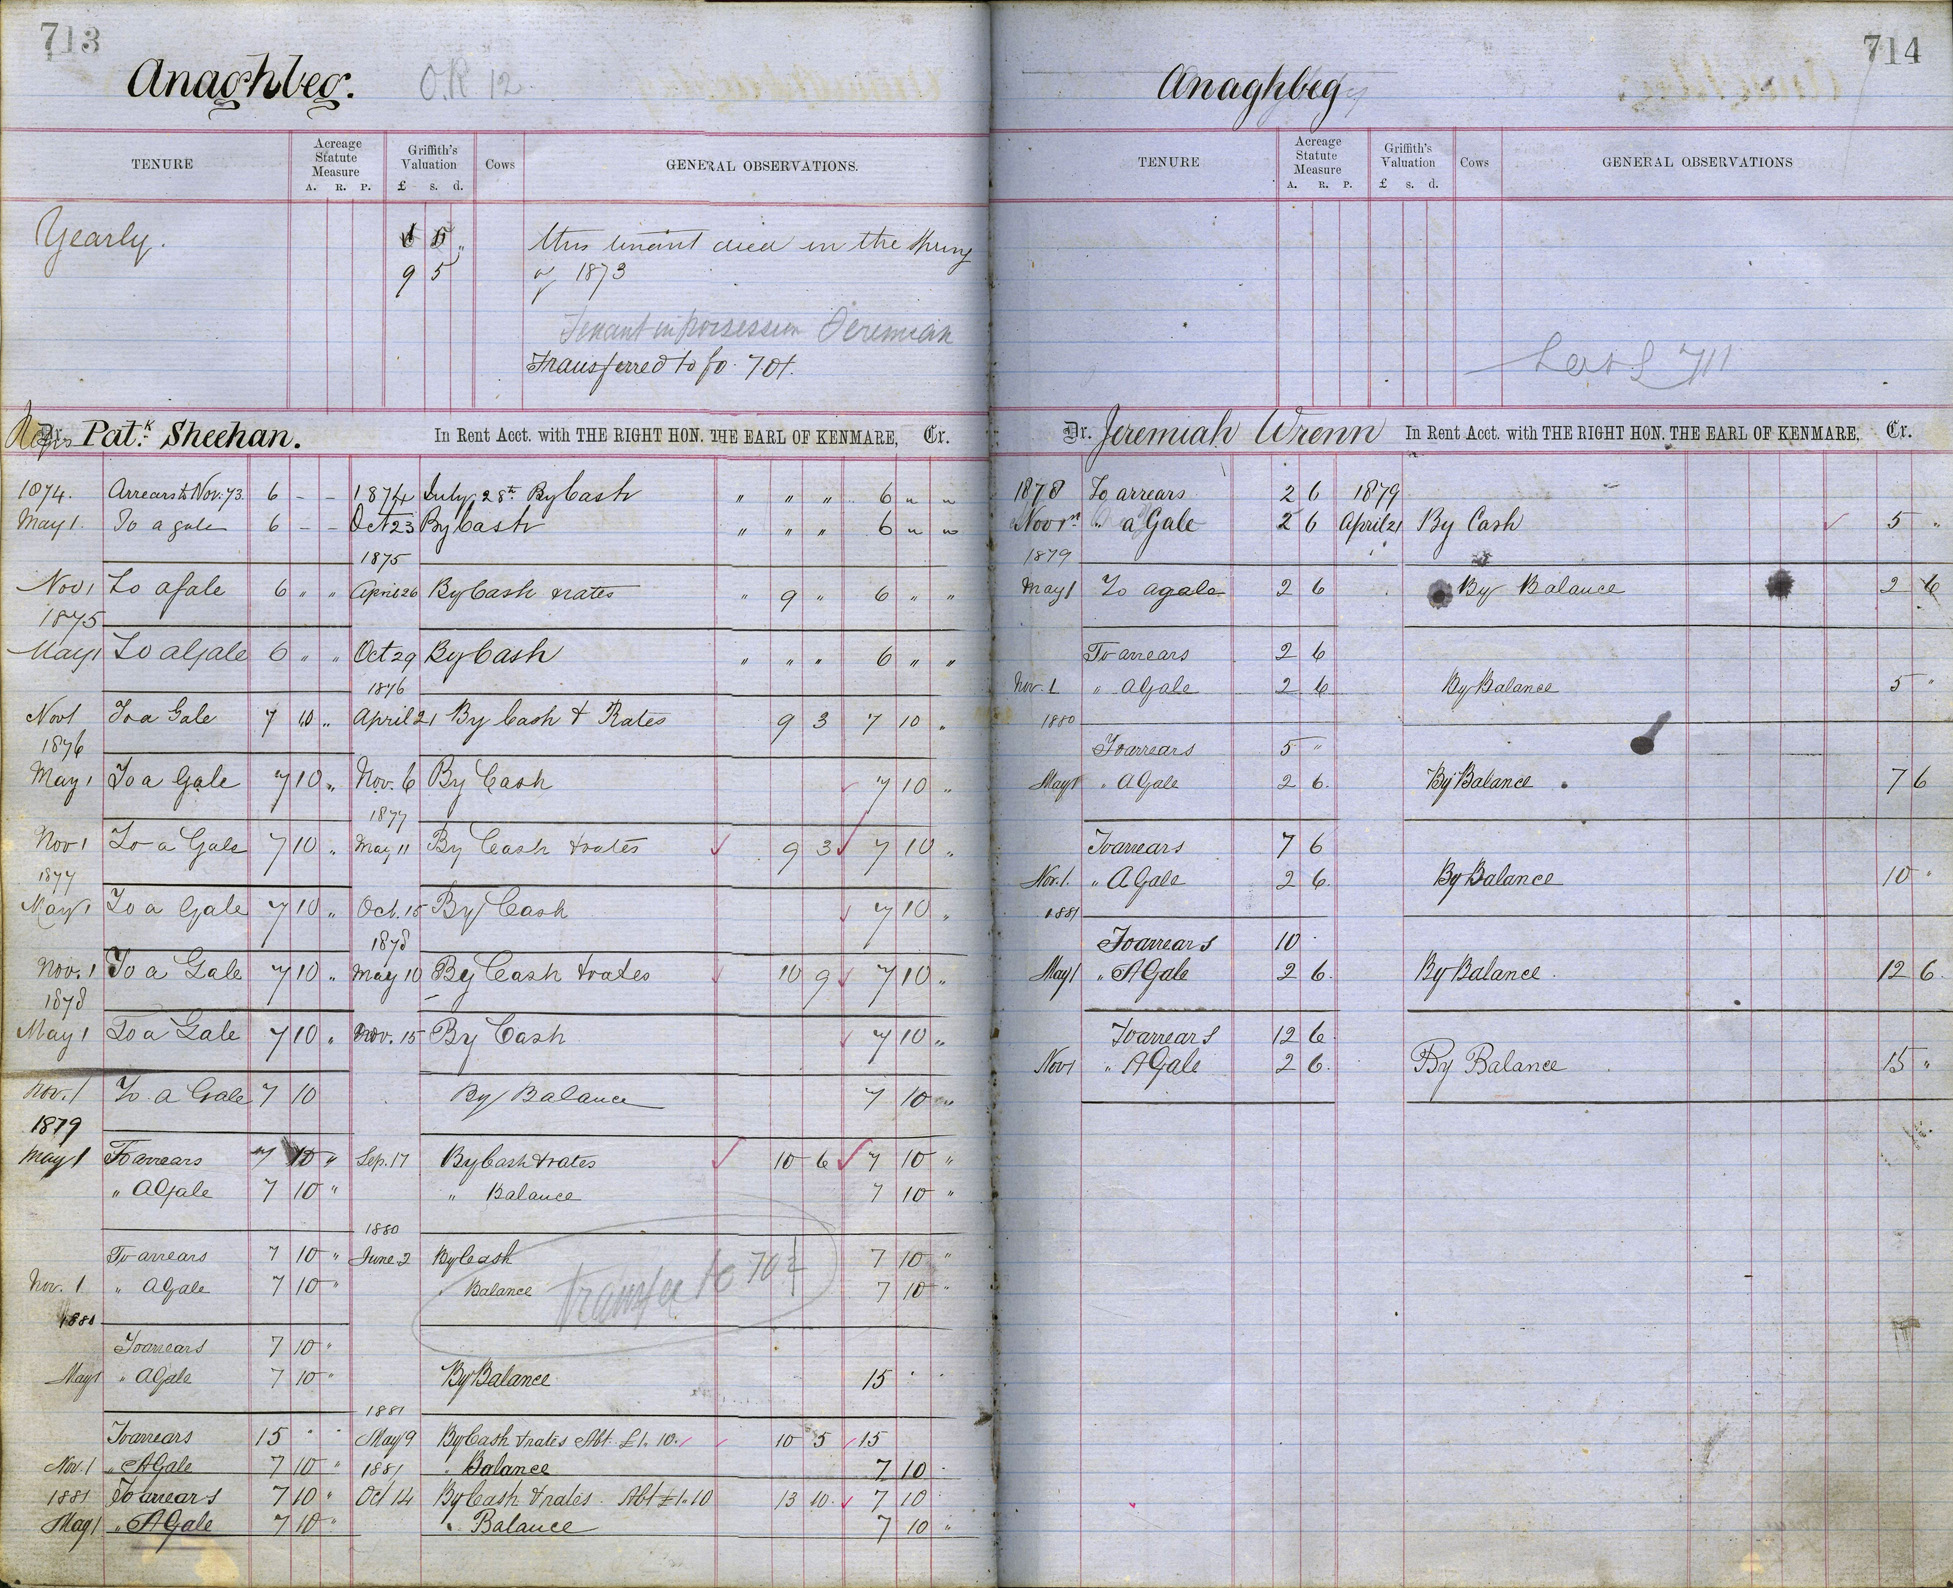 713
Anaghbeg.
O.R 12
TENURE
Acreage Statute Measure
A. R. P.
Griffith's Valuation
£ s. d.
Cows
GENERAL OBSERVATIONS.
Yearly.
this tenant died in the Spring
9 5
of 1873
Tenant in possession Jeremiah
Transferred to fo. 701.
Reps Dr. Pat.k Sheehan. In Rent Acct. with THE RIGHT HON. THE EARL OF KENMARE, Cr.
1874. Arrears to Nov. 73. 6 - - 1874 July 28th By Cash " " " 6 " "
May 1. To a gale 6 - - Oct 23 By Cash " " " 6 " "
1875
Nov 1 To a Gale 6 " " April 26 By Cash & rates " 9 " 6 " "
1875
May 1 To a Gale 6 " " Oct 29 By Cash " " " 6 " "
1876
Nov 1 To a Gale 7 10 " April 21 By Cash & Rates 9 3 7 10 "
1876
May 1 To a Gale 7 10 " Nov. 6 By Cash 7 10 "
1877
Nov 1 To a Gale 7 10 " May 11 By Cash & rates 9 3 7 10 "
1877
May 1 To a Gale 7 10 " Oct. 15 By Cash 7 10 "
1878
Nov. 1 To a Gale 7 10 " May 10 By Cash & rates 10 9 7 10 "
1878
May 1 To a Gale 7 10 " Nov. 15 By Cash 7 10 "
Nov. 1 To a Gale 7 10 By Balance 7 10 "
1879
May 1 To arrears 7 10 " Sep. 17 By Cash & rates 10 6 7 10 "
" A Gale 7 10 " " Balance 7 10 "
1880
To arrears 7 10 " June 2 By Cash 7 10 "
Nov. 1 " A Gale 7 10 " " Balance 7 10 "
Transfer to 701
1880
To arrears 7 10 "
May 1 " A Gale 7 10 " By Balance 15 " "
1881
To arrears 15 " " May 9 By Cash & rates Abt. £1. 10. 10 5 15
Nov. 1 " A Gale 7 10 " 1881 " Balance 7 10 "
1881 To arrears 7 10 " Oct 14 By Cash & rates. Abt £1.10 13 10 7 10
May 1 " A Gale 7 10 " " Balance 7 10 "
714
Anaghbeg
TENURE
Acreage Statute Measure
A. R. P.
Griffith's Valuation
£ s. d.
Cows
GENERAL OBSERVATIONS
711
Dr. Jeremiah Wrenn In Rent Acct. with THE RIGHT HON. THE EARL OF KENMARE, Cr.
1878 To arrears 2 6 1879
Nov 1st " a Gale 2 6 April 21 By Cash 5 "
1879
May 1 To a gale 2 6 By Balance 2 6
To arrears 2 6
Nov. 1 " A Gale 2 6 By Balance 5 "
1880
To arrears 5 "
May 1 " A Gale 2 6. By Balance 7 6
To arrears 7 6
Nov. 1. " A Gale 2 6 By Balance 10 "
1881
To arrears 10
May 1 " A Gale 2 6. By Balance 12 6.
To arrears 12 6
Nov 1 " A Gale 2 6. By Balance 15 "